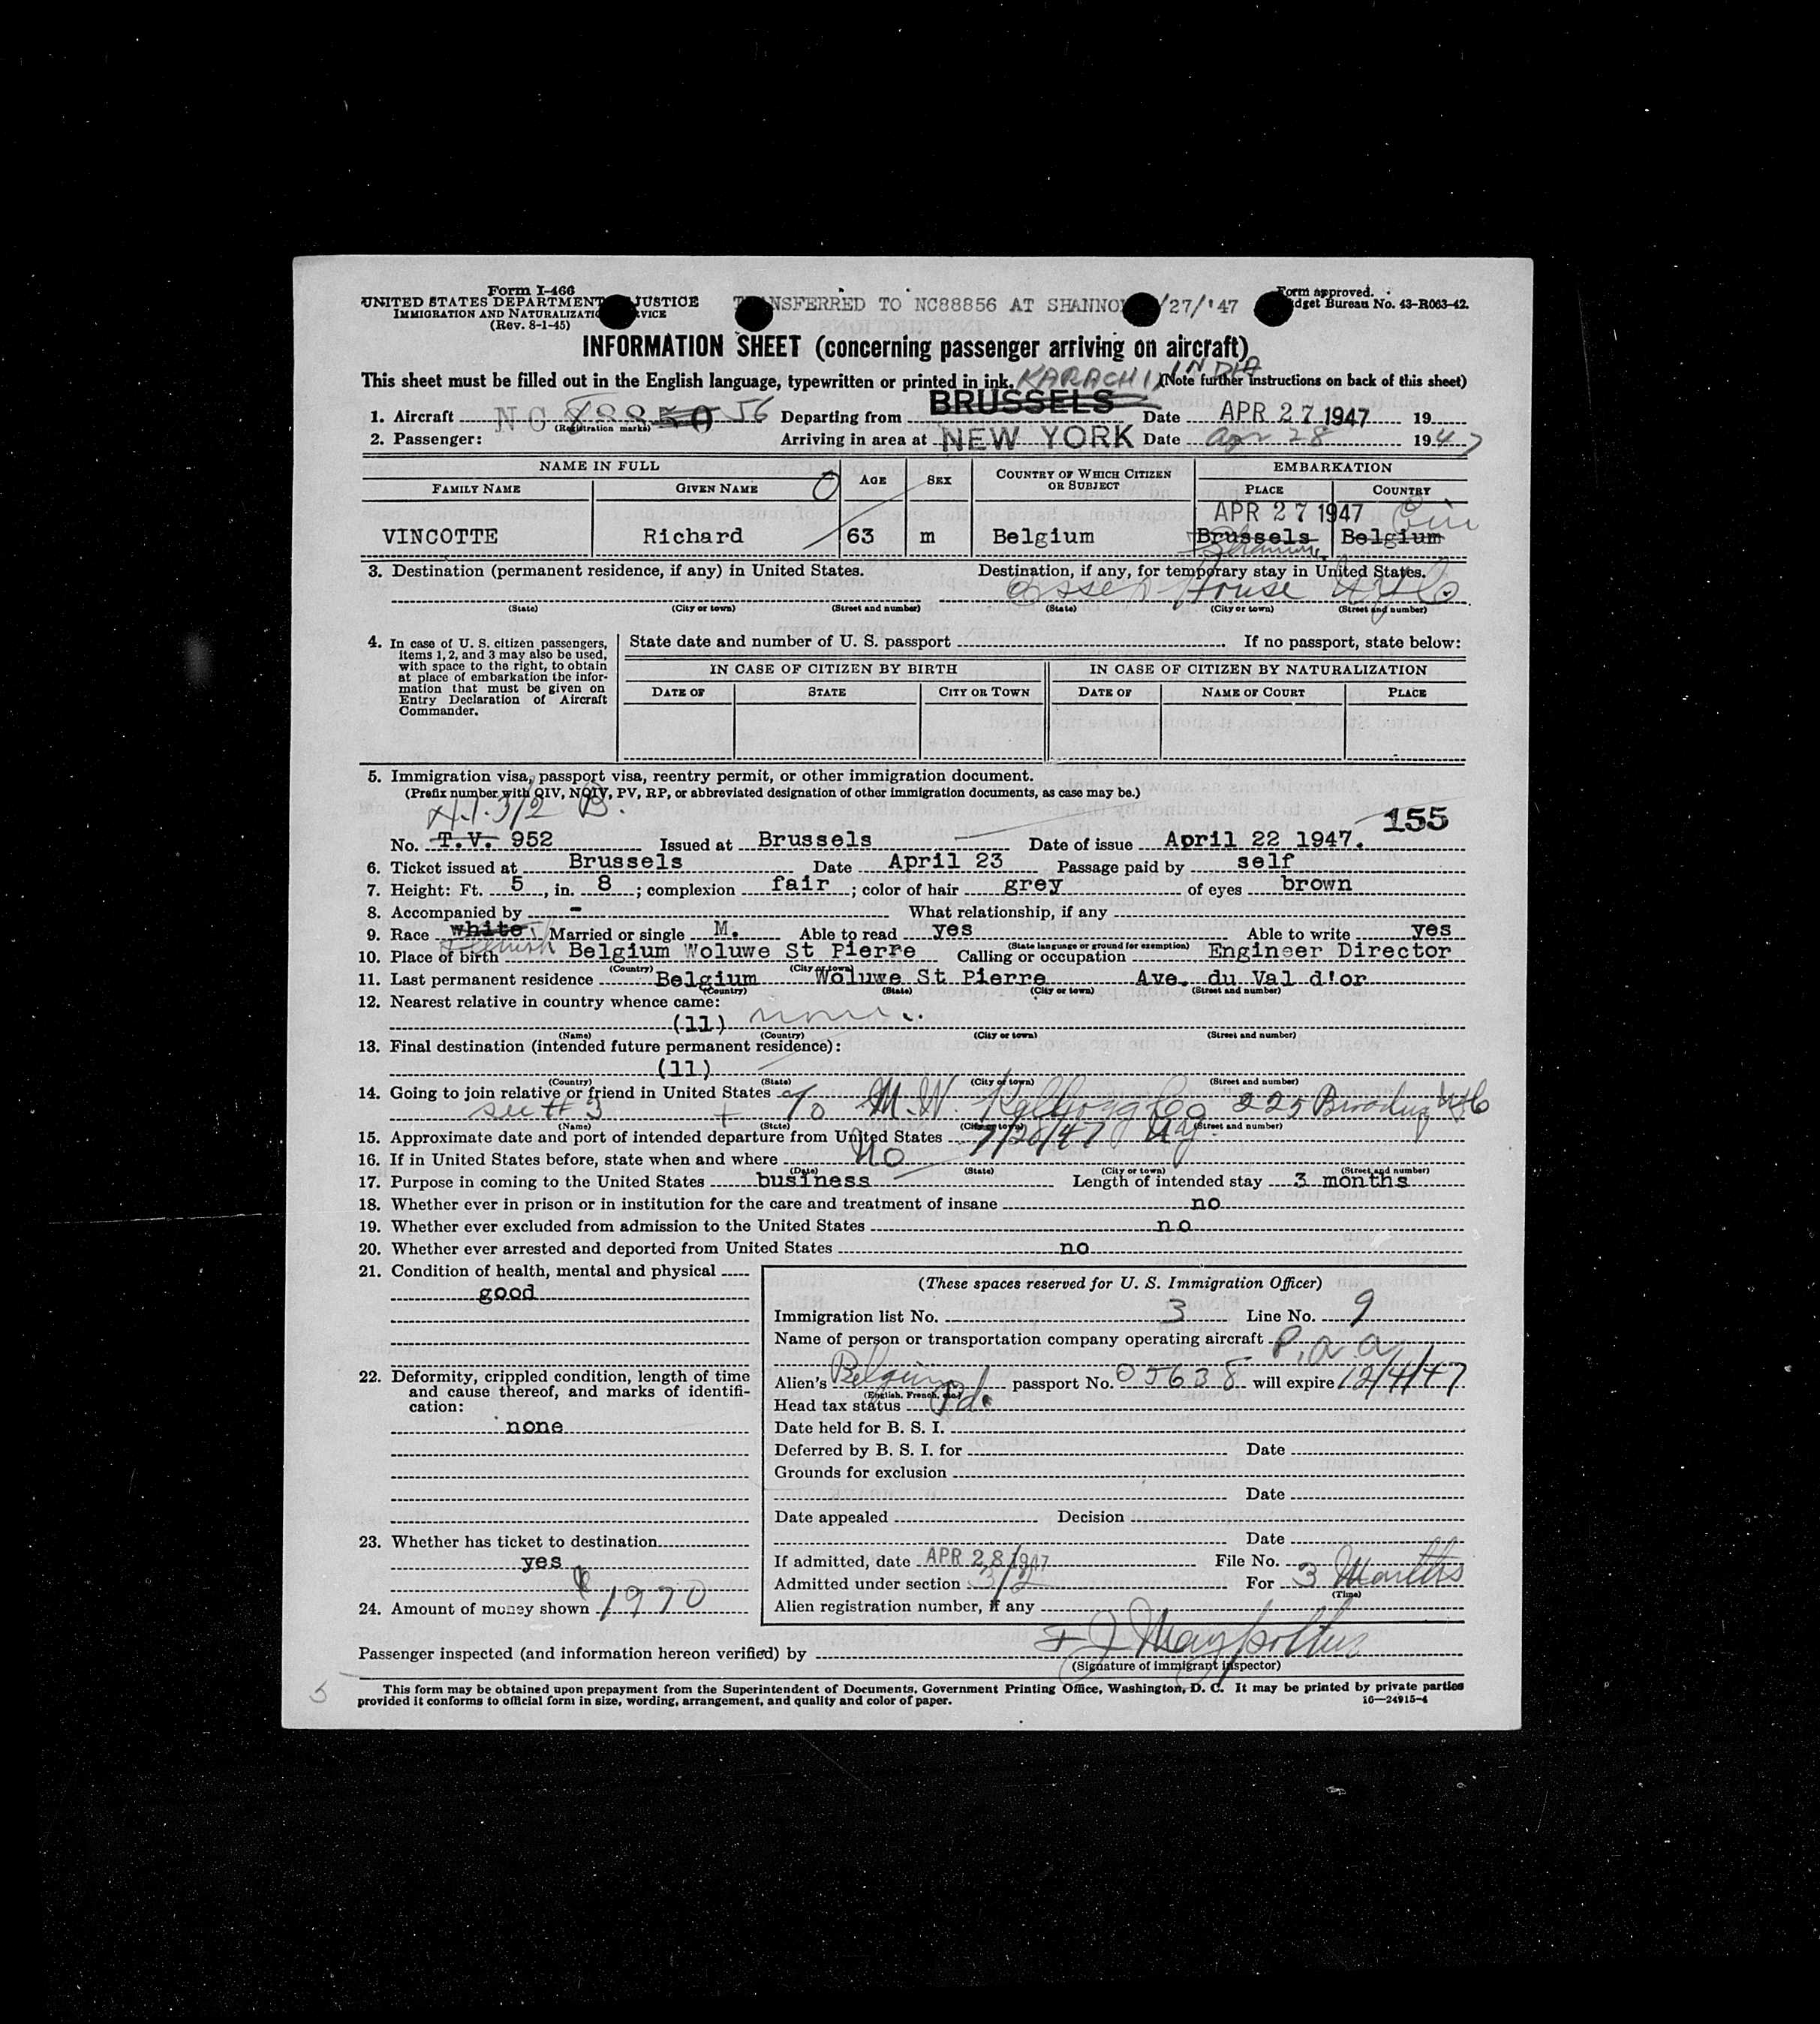 Form I-466
UNITED STATES DEPARTMENT JUSTICE
IMMIGRATION AND NATURALIZATIO VICE
(Rev. 8-1-45)
T NSFERRED TO NC88856 AT SHANNO /27/'47
Form approved.
dget Bureau No. 43-R063-42.
INFORMATION SHEET (concerning passenger arriving on aircraft)
This sheet must be filled out in the English language, typewritten or printed in ink. KARACHI INDIA (Note further instructions on back of this sheet)
1. Aircraft NC 88850 56 (Registration marks) Departing from BRUSSELS Date APR 27 1947 19
2. Passenger: Arriving in area at NEW YORK Date Apr 28 1947
NAME IN FULL AGE SEX COUNTRY OF WHICH CITIZEN OR SUBJECT EMBARKATION
FAMILY NAME GIVEN NAME PLACE COUNTRY
APR 27 1947 Eire
VINCOTTE Richard 63 m Belgium Brussels Belgium
Shannon
3. Destination (permanent residence, if any) in United States. Destination, if any, for temporary stay in United States.
Essex House NYC
(State) (City or town) (Street and number) (State) (City or town) (Street and number)
4. In case of U. S. citizen passengers, items 1, 2, and 3 may also be used, with space to the right, to obtain at place of embarkation the information that must be given on Entry Declaration of Aircraft Commander.
State date and number of U. S. passport If no passport, state below:
IN CASE OF CITIZEN BY BIRTH IN CASE OF CITIZEN BY NATURALIZATION
DATE OF STATE CITY OR TOWN DATE OF NAME OF COURT PLACE
5. Immigration visa, passport visa, reentry permit, or other immigration document.
(Prefix number with QIV, NQIV, PV, RP, or abbreviated designation of other immigration documents, as case may be.)
3/2 B. 155
No. T.V. 952 Issued at Brussels Date of issue April 22 1947.
6. Ticket issued at Brussels Date April 23 Passage paid by self
7. Height: Ft. 5, in. 8; complexion fair; color of hair grey of eyes brown
8. Accompanied by - What relationship, if any
9. Race white Married or single M. Able to read yes Able to write yes
Flemish (State language or ground for exemption)
10. Place of birth Belgium Woluwe St Pierre Calling or occupation Engineer Director
(Country) (City or town)
11. Last permanent residence Belgium Woluwe St Pierre Ave. du Val d'or
(Country) (State) (City or town) (Street and number)
12. Nearest relative in country whence came:
(11) none
(Name) (Country) (City or town) (Street and number)
13. Final destination (intended future permanent residence):
(11)
(Country) (State) (City or town) (Street and number)
14. Going to join relative or friend in United States
see # 3 + To M.W. Kellogg Co 225 Broadway NYC
(Name) (State) (City or town) (Street and number)
15. Approximate date and port of intended departure from United States 7/26/47 NY
16. If in United States before, state when and where No
(Date) (State) (City or town) (Street and number)
17. Purpose in coming to the United States business Length of intended stay 3 months
18. Whether ever in prison or in institution for the care and treatment of insane no
19. Whether ever excluded from admission to the United States no
20. Whether ever arrested and deported from United States no
21. Condition of health, mental and physical
good
22. Deformity, crippled condition, length of time and cause thereof, and marks of identification:
none
23. Whether has ticket to destination
yes
24. Amount of money shown 1970
(These spaces reserved for U. S. Immigration Officer)
Immigration list No. 3 Line No. 9
Name of person or transportation company operating aircraft P.a.a.
Alien's Belgium passport No. 05638 will expire 12/4/47
(English, French, etc.)
Head tax status Pd.
Date held for B. S. I.
Deferred by B. S. I. for Date
Grounds for exclusion
Date
Date appealed Decision
Date
If admitted, date APR 28 1947 File No.
Admitted under section 3/2 For 3 Months
(Time)
Alien registration number, if any
Passenger inspected (and information hereon verified) by
(Signature of immigrant inspector)
This form may be obtained upon prepayment from the Superintendent of Documents, Government Printing Office, Washington, D. C. It may be printed by private parties
provided it conforms to official form in size, wording, arrangement, and quality and color of paper. 16—24915-4
5